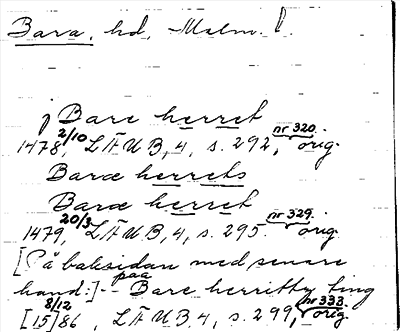 Bara, hd, Malm. l.
j Bare herret
1478 2/10, LÄUB, 4, s. 292, nr 320. orig.
Baræ herrets
Baræ herret
1479, 20/3 LÄUB, 4, s. 295 nr 329. orig.
[På baksidan med senare
hand:] -- paa Bare herritty ting
[15]86 8/12, LÄUB 4, s. 299, nr 333. orig.